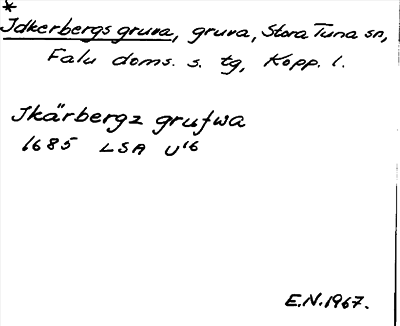 *
Idkerbergs gruva, gruva, Stora Tuna sn,
Falu doms. s. tg, Kopp. l.
Ikärbergz grufwa
1685 LSA U16
E.N. 1967.